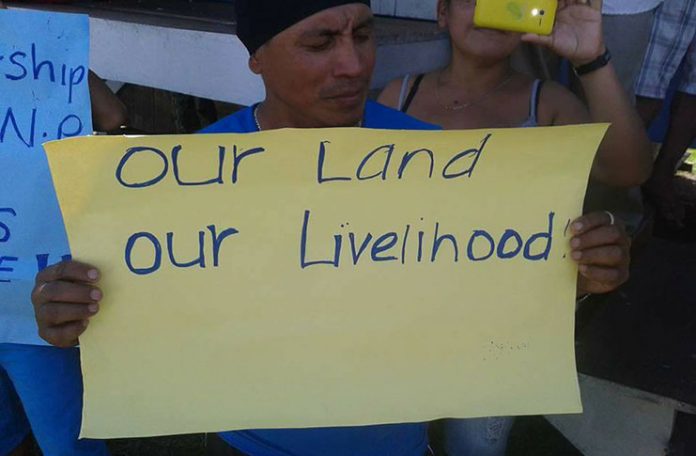 ship
N.P
S
E !!
OUR Land
our Livelihood!